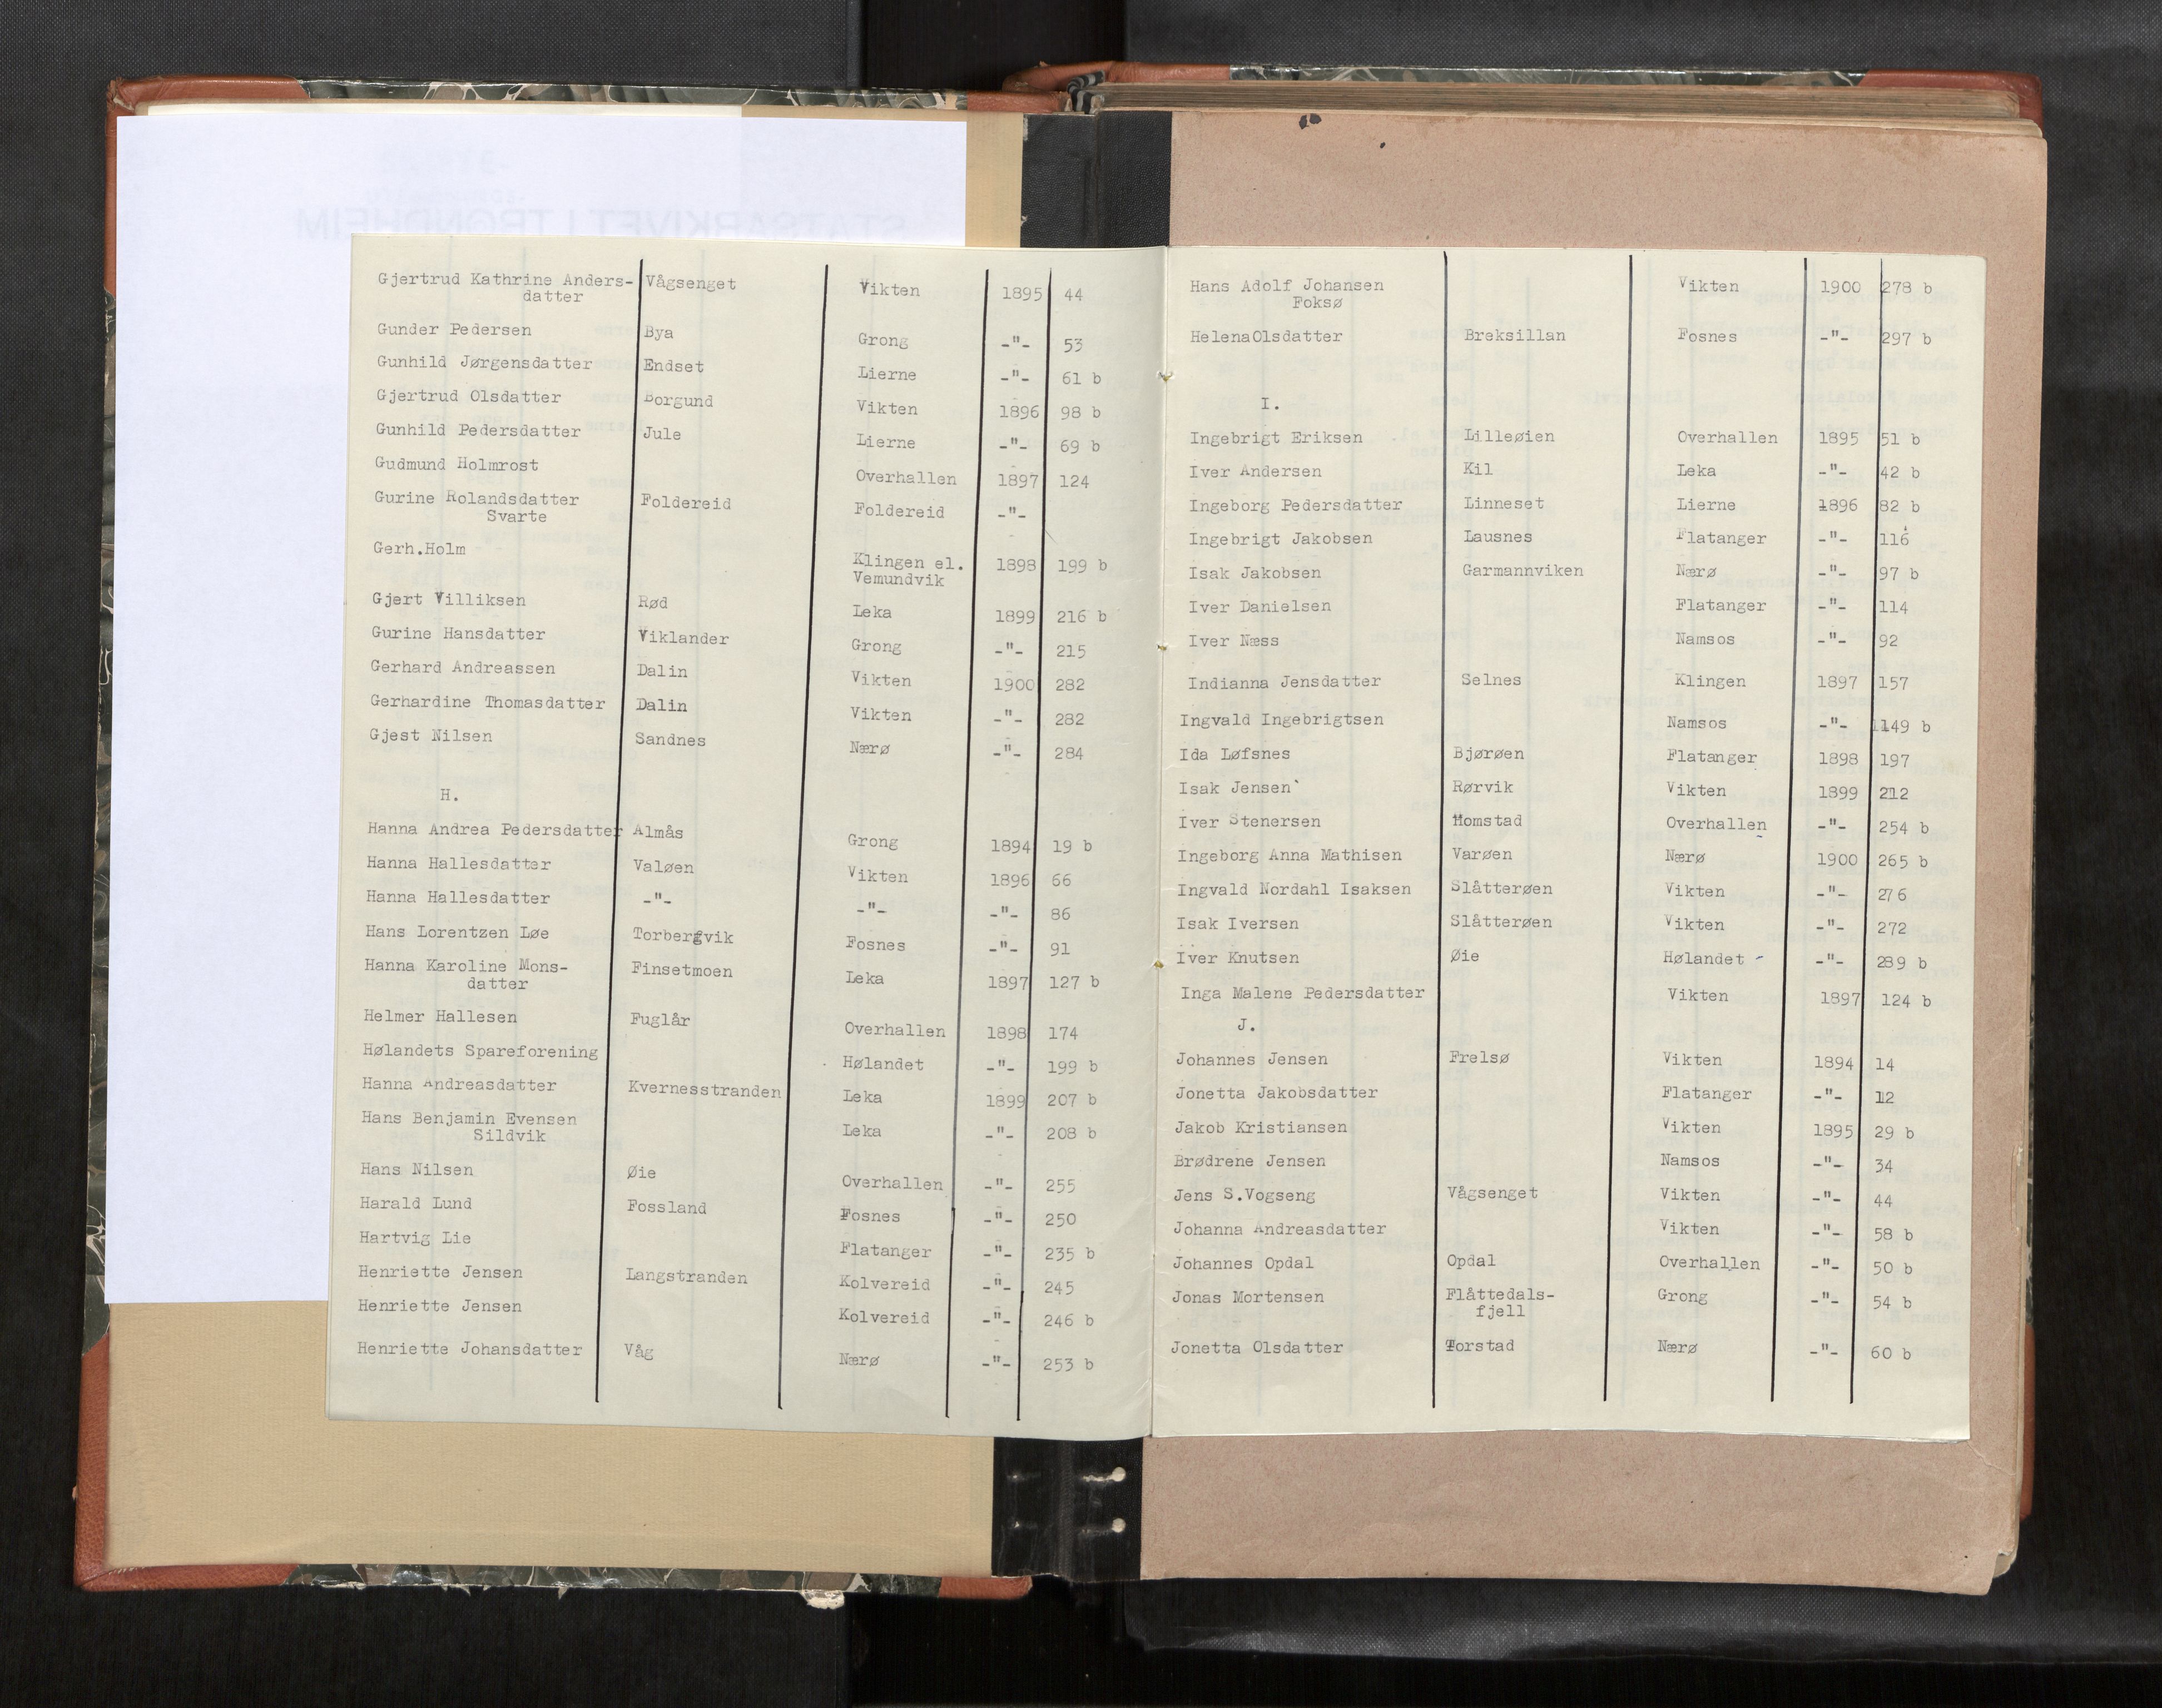 Gjertrud Kathrine Anders- Vågsenget Vikten 1895 44
datter
Gunder Pedersen Bya Grong -"- 53
Gunhild Jørgensdatter Endset Lierne -"- 61 b
Gjertrud Olsdatter Borgund Vikten 1896 98 b
Gunhild Pedersdatter Jule Lierne -"- 69 b
Gudmund Holmrost Overhallen 1897 124
Gurine Rolandsdatter Foldereid Foldereid -"-
Svarte
Gerh.Holm Klingen el. 1898 199 b
Vemundvik
Gjert Villiksen Rød Leka 1899 216 b
Gurine Hansdatter Viklander Grong -"- 215
Gerhard Andreassen Dalin Vikten 1900 282
Gerhardine Thomasdatter Dalin Vikten -"- 282
Gjest Nilsen Sandnes Nærø -"- 284
H.
Hanna Andrea Pedersdatter Almås Grong 1894 19 b
Hanna Hallesdatter Valøen Vikten 1896 66
Hanna Hallesdatter -"- -"- -"- 86
Hans Lorentzen Løe Torbergvik Fosnes -"- 91
Hanna Karoline Mons- Finsetmoen Leka 1897 127 b
datter
Helmer Hallesen Fuglår Overhallen 1898 174
Hølandets Spareforening Hølandet -"- 199 b
Hanna Andreasdatter Kvernesstranden Leka 1899 207 b
Hans Benjamin Evensen Leka -"- 208 b
Sildvik
Hans Nilsen Øie Overhallen -"- 255
Harald Lund Fossland Fosnes -"- 250
Hartvig Lie Flatanger -"- 235 b
Henriette Jensen Langstranden Kolvereid -"- 245
Henriette Jensen Kolvereid -"- 246 b
Henriette Johansdatter Våg Nærø -"- 253 b
Hans Adolf Johansen Vikten 1900 278 b
Foksø
HelenaOlsdatter Breksillan Fosnes -"- 297 b
I.
Ingebrigt Eriksen Lilleøien Overhallen 1895 51 b
Iver Andersen Kil Leka -"- 42 b
Ingeborg Pedersdatter Linneset Lierne 1896 82 b
Ingebrigt Jakobsen Lausnes Flatanger -"- 116
Isak Jakobsen Garmannviken Nærø -"- 97 b
Iver Danielsen Flatanger -"- 114
Iver Næss Namsos -"- 92
Indianna Jensdatter Selnes Klingen 1897 157
Ingvald Ingebrigtsen Namsos -"- 149 b
Ida Løfsnes Bjørøen Flatanger 1898 197
Isak Jensen Rørvik Vikten 1899 212
Iver Stenersen Homstad Overhallen -"- 254 b
Ingeborg Anna Mathisen Varøen Nærø 1900 265 b
Ingvald Nordahl Isaksen Slåtterøen Vikten -"- 276
Isak Iversen Slåtterøen Vikten -"- 272
Iver Knutsen Øie Hølandet -"- 289 b
Inga Malene Pedersdatter Vikten 1897 124 b
J.
Johannes Jensen Frelsø Vikten 1894 14
Jonetta Jakobsdatter Flatanger -"- 12
Jakob Kristiansen Vikten 1895 29 b
Brødrene Jensen Namsos -"- 34
Jens S.Vogseng Vågsenget Vikten -"- 44
Johanna Andreasdatter Vikten -"- 58 b
Johannes Opdal Opdal Overhallen -"- 50 b
Jonas Mortensen Flåttedals- Grong -"- 54 b
fjell
Jonetta Olsdatter Torstad Nærø -"- 60 b